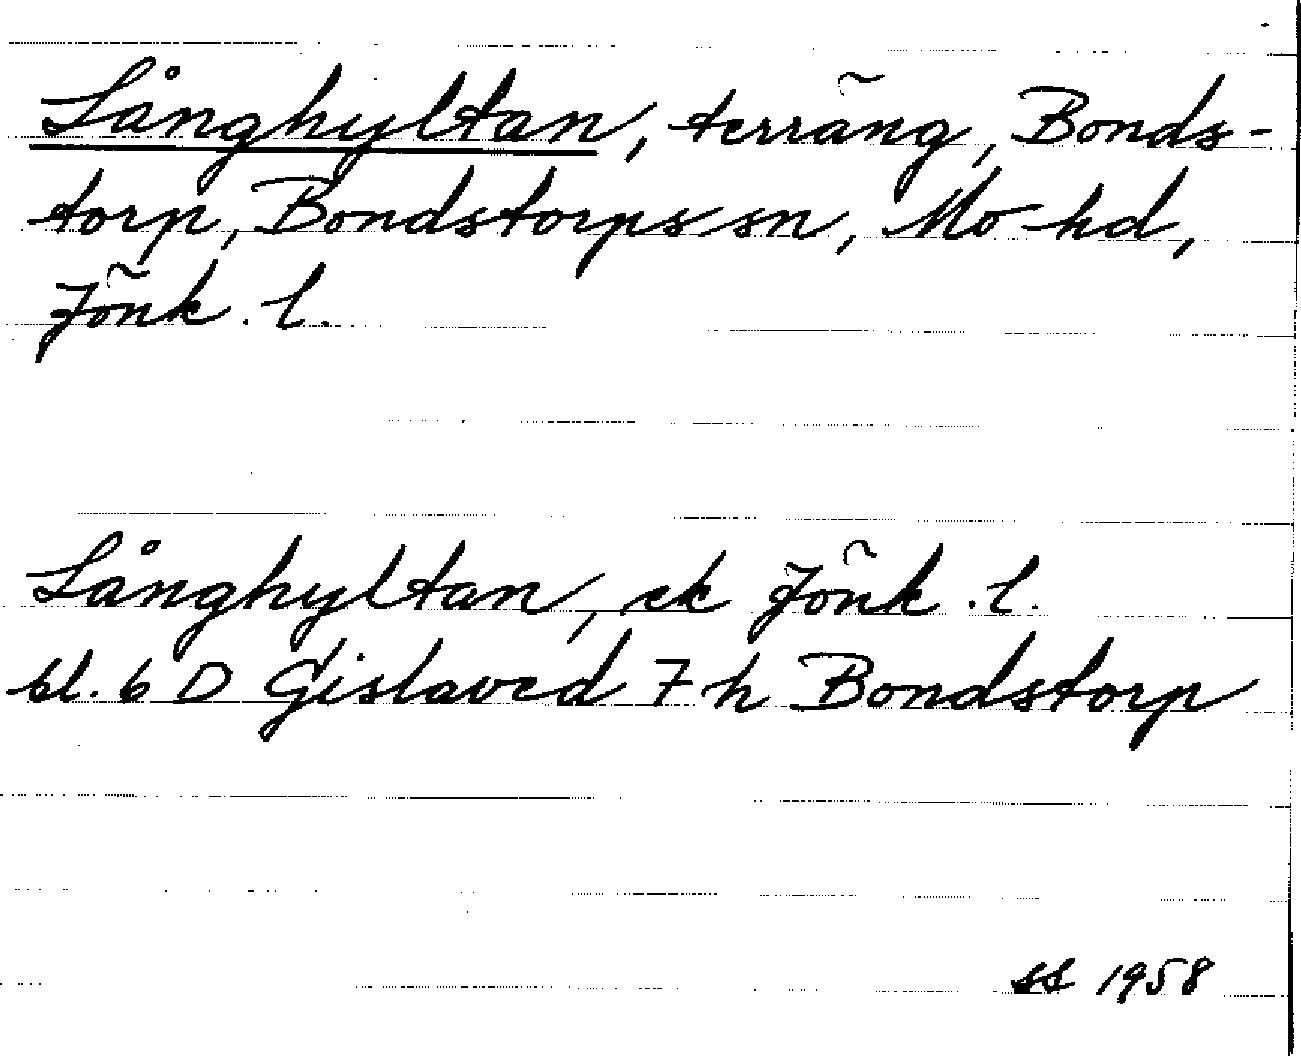 Långhyltan, terräng, Bonds-
torp, Bondstorps sn, Mo hd,
Jönk. l.
Långhyltan, ek Jönk. l.
bl. 6 D Gislaved 7 h Bondstorp
SS 1958